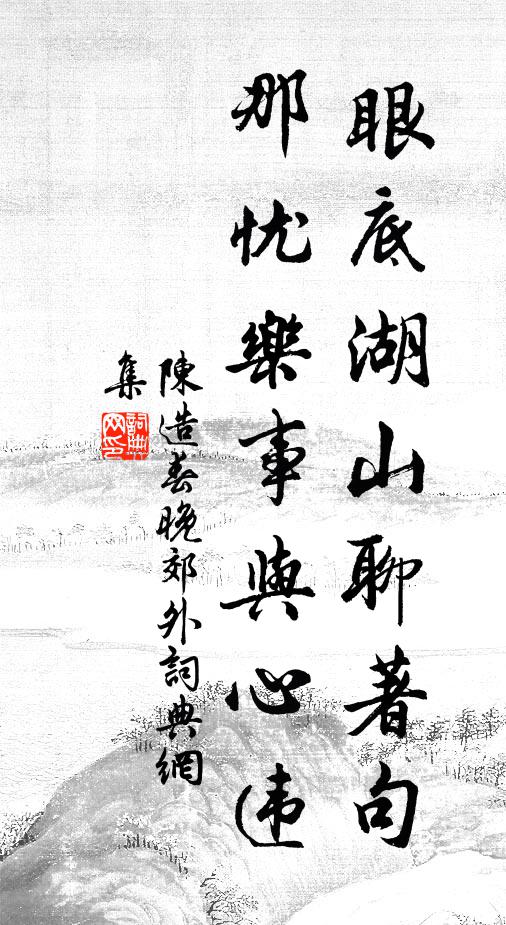 眼底湖山聊著句
那忧樂事與心违
陳造春晚郊外詞典網
集
詞典
网印